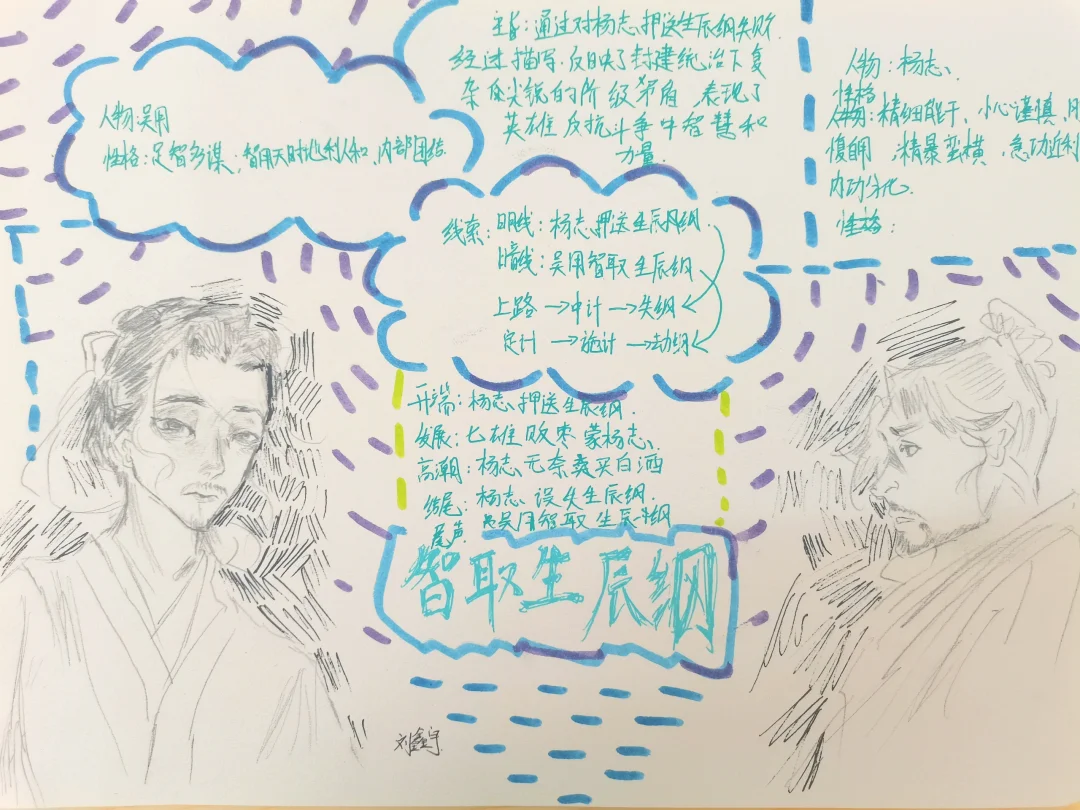 主旨:通过对杨志押送生辰纲失败
经过描写.反映了封建统治下复
杂尖锐的阶级矛盾 表现了
英雄反抗斗争中智慧和
力量.
人物:吴用
性格:足智多谋;智用天时地利人和、内部团结.
人物:杨志、
性格
人物:精细能干、小心谨慎、
愎自用 ;粗暴蛮横、急功近利
内功分化.
性格:
线索:明线:杨志押送生辰纲
暗线:吴用智取生辰纲
上路→中计→失纲
定计→施计→劫纲
开端:杨志押送生辰纲.
发展:七雄贩枣蒙杨志、
高潮:杨志无奈卖买白酒
结尾:杨志 误失生辰纲.
尾声 吴用智取 生辰纲
智取生辰纲
刘鑫宇